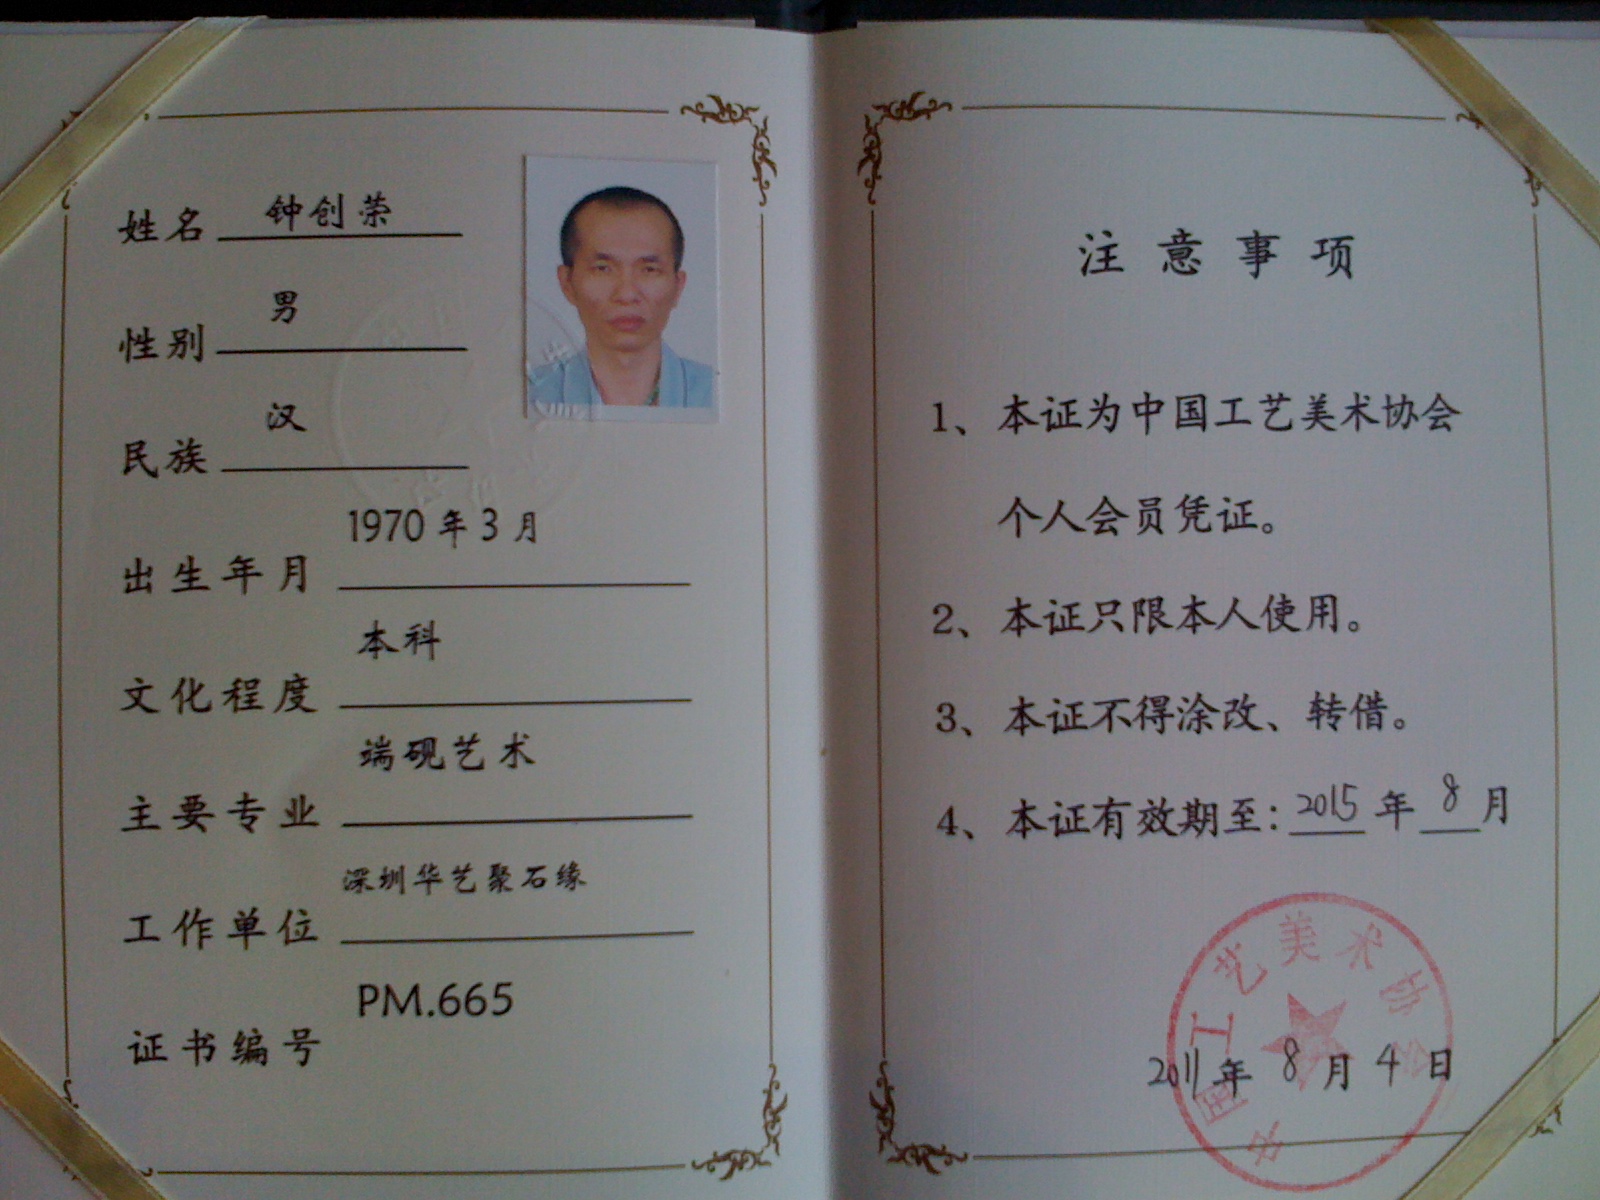 姓名 钟创荣
性别 男
民族 汉
出生年月 1970年3月
文化程度 本科
主要专业 端砚艺术
工作单位 深圳华艺聚石缘
证书编号 PM.665
注意事项
1、本证为中国工艺美术协会
个人会员凭证。
2、本证只限本人使用。
3、本证不得涂改、转借。
4、本证有效期至：2015年8月
2011年8月4日
中国工艺美术协会